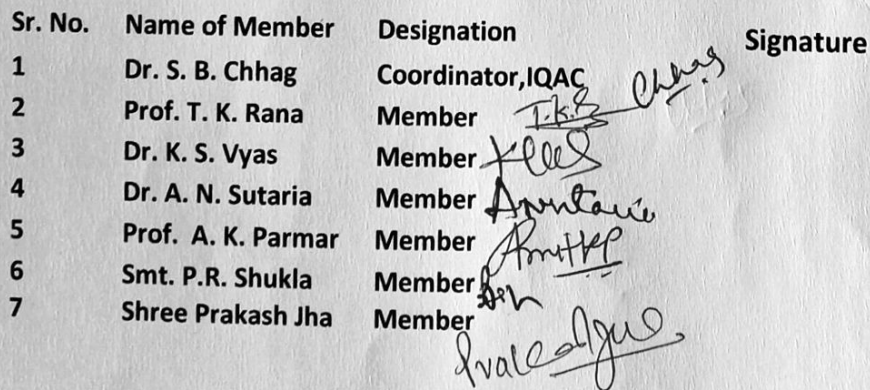 Sr. No. Name of Member Designation Signature
1 Dr. S. B. Chhag Coordinator,IQAC Chhag
2 Prof. T. K. Rana Member T.K.R
3 Dr. K. S. Vyas Member
4 Dr. A. N. Sutaria Member
5 Prof. A. K. Parmar Member
6 Smt. P.R. Shukla Member
7 Shree Prakash Jha Member